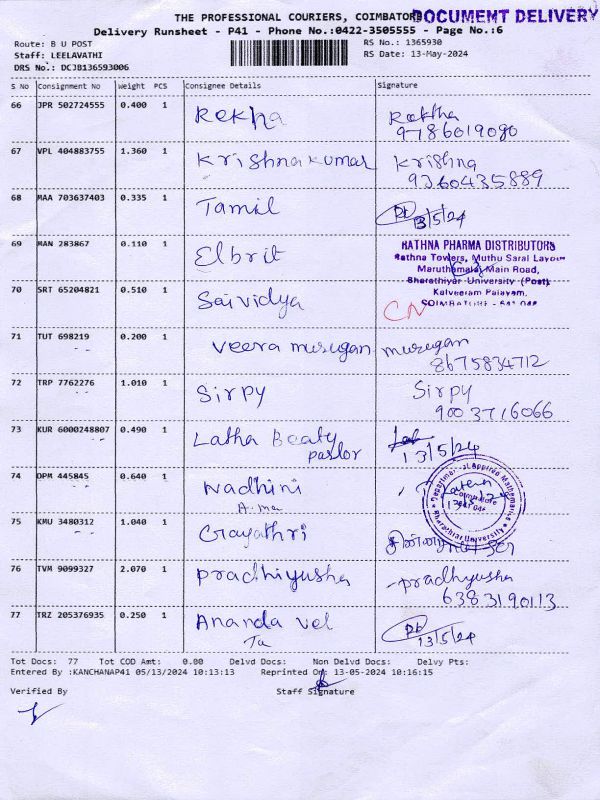 THE PROFESSIONAL COURIERS, COIMBATORE
DOCUMENT DELIVERY
Delivery Runsheet - P41 - Phone No.:0422-3505555 - Page No.:6
Route: B U POST
RS No.: 1365930
Staff: LEELAVATHI
RS Date: 13-May-2024
DRS No.: DCJB136593006
S No Consignment No Weight PCS Consignee Details Signature
66 JPR 502724555 0.400 1 Rekha Rekha
9786019090
67 VPL 404883755 1.360 1 Krishnakumar Krishna
9360435889
68 MAA 703637403 0.335 1 Tamil 13/5/24
69 MAN 283867 0.110 1 Elbrit
RATHNA PHARMA DISTRIBUTORS
Rathna Towers, Muthu Saral Layout
Maruthamalai Main Road,
Bharathiyar University (Post)
Kalveeram Palayam,
COIMBATORE - 641 046
70 SRT 65204821 0.510 1 Sai vidya CN
71 TUT 698219 0.200 1 Veera murugan murugan
8675834712
72 TRP 7762276 1.010 1 Sirpy Sirpy
9003716066
73 KUR 6000248807 0.490 1 Latha Beaty
parlor
13/5/24
74 DPM 445845 0.640 1 Nadhini
Department of Applied Mathematics
Coimbatore
641 046
Bharathiar University
75 KMU 3480312 1.040 1 Gayathri
76 TVM 9099327 2.070 1 Pradhiyusha pradhyusha
6383190113
77 TRZ 205376935 0.250 1 Ananda vel
13/5/24
Tot Docs: 77 Tot COD Amt: 0.00 Delvd Docs: Non Delvd Docs: Delvy Pts:
Entered By :KANCHANAP41 05/13/2024 10:13:13 Reprinted On: 13-05-2024 10:16:15
Verified By Staff Signature